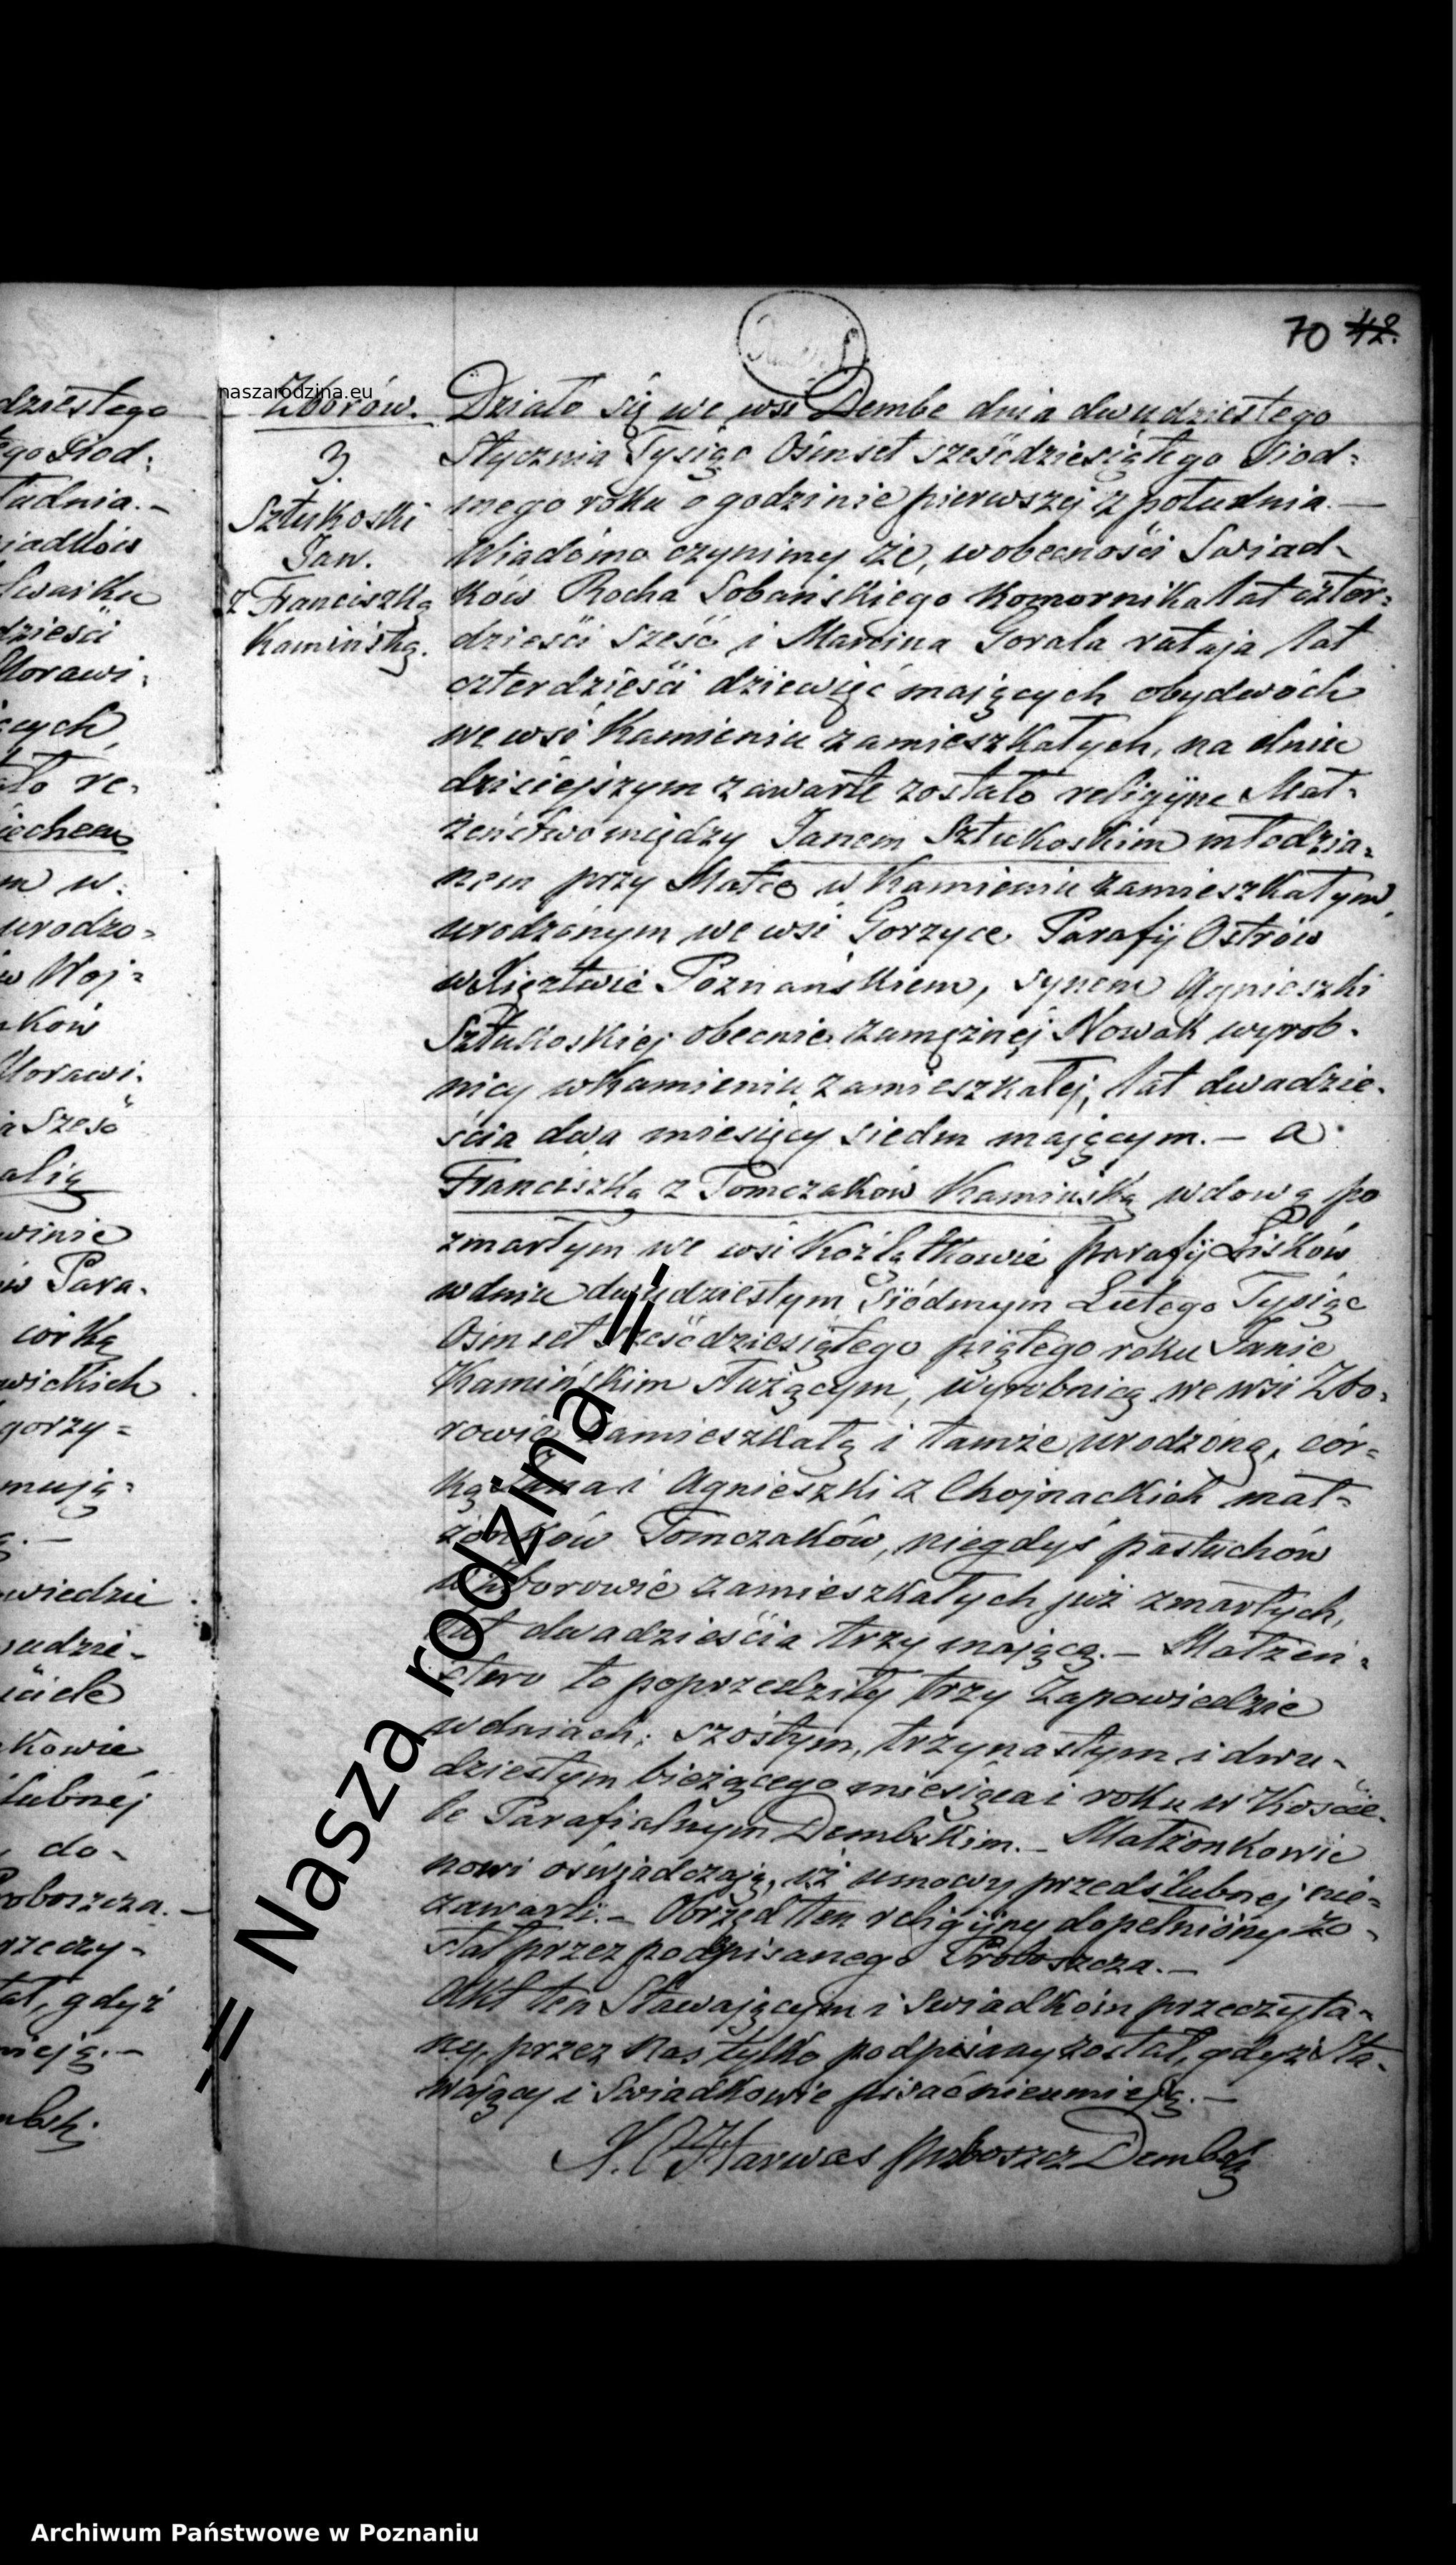 70 42.
naszarodzina.eu
Zborów.
3.
Sztukoski
Jan.
z Franciszką
Kamińską.
Działo się we wsi Dembe dnia dwudziestego
Stycznia Tysiąc Ośmset sześćdziesiątego Siod-
mego roku o godzinie pierwszej z południa. —
Wiadomo czynimy że, w obecności Swiad-
ków Rocha Sobańskiego Komornika lat czter-
dzieści sześć i Marcina Gorala rataja lat
czterdzieści dziewięć mających obydwóch
we wsi Kamieniu zamieszkałych, na dniu
dzisiejszym zawarte zostało religijne Mał-
żeństwo między Janem Sztukoskim młodzia-
nem przy Matce w Kamieniu zamieszkałym,
urodzonym we wsi Gorzyce Parafij Ostrów
w Xięztwie Poznańskiem, synem Agnieszki
Sztukoskiej obecnie zamężnej Nowak wyrob-
nicy w Kamieniu zamieszkałej, lat dwadzie-
ścia dwa miesięcy siedm mającym. — a
Franciszką z Tomczaków Kamińską wdową po
zmarłym we wsi Koźlątkowie parafij Lisków
w dniu dwudziestym Siódmym Lutego Tysiąc
Ośmset sześćdziesiątego piątego roku Janie
Kamińskim służącym, wyrobnicą we wsi Zbo-
rowie zamieszkałą i tamże urodzoną, cór-
ką Jana i Agnieszki z Chojnackich mał-
żonków Tomczaków, niegdyś pastuchów
w Zborowie zamieszkałych już zmarłych,
lat dwadzieścia trzy mającą. — Małżeń-
stwo to poprzedziły trzy Zapowiedzie
w dniach; szóstym, trzynastym i dwu-
dziestym bieżącego miesiąca i roku w Koście-
le Parafialnym Dembskim. — Małżonkowie
nowi oświadczają, iż umowy przedślubnej nie-
zawarli. — Obrzęd ten religijny dopełniony zo-
stał przez podpisanego Proboszcza. —
Akt ten Stawającym i Swiadkom przeczyta-
ny, przez Nas tylko podpisany został, gdyż Sta-
wający i Swiadkowie pisać nieumieją. —
proboszcz Dembski
-= Nasza rodzina =-
Archiwum Państwowe w Poznaniu